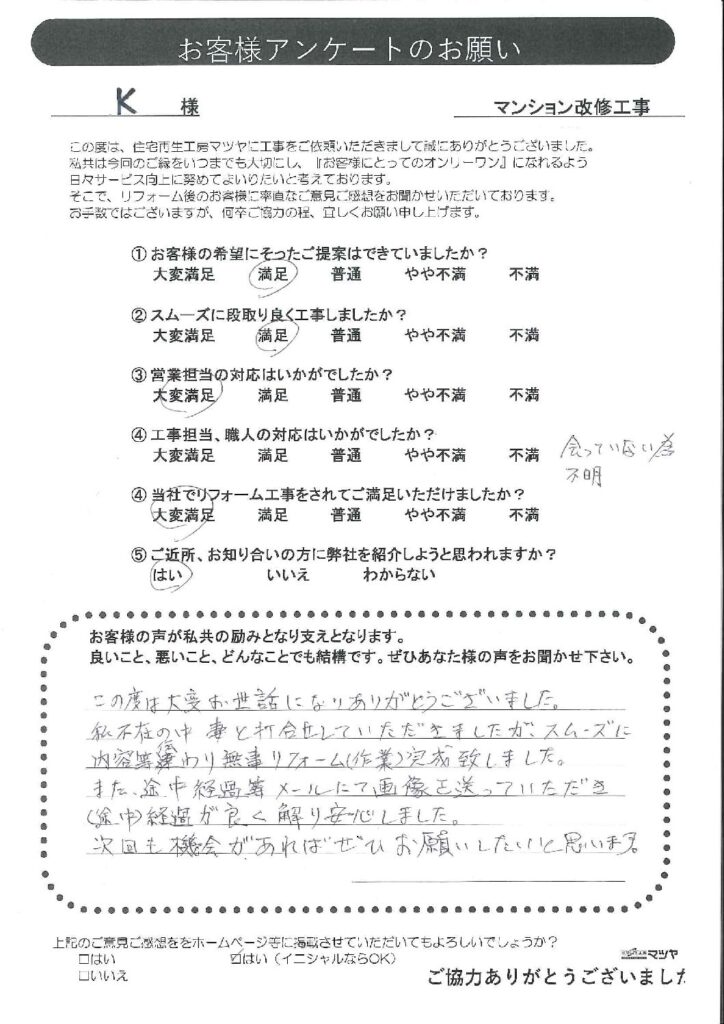 お客様アンケートのお願い
K 様
マンション改修工事
この度は、住宅再生工房マツヤに工事をご依頼いただきまして誠にありがとうございました。
私共は今回のご縁をいつまでも大切にし、『お客様にとってのオンリーワン』になれるよう
日々サービス向上に努めてまいりたいと考えております。
そこで、リフォーム後のお客様に率直なご意見ご感想をお聞かせいただいております。
お手数ではございますが、何卒ご協力の程、宜しくお願い申し上げます。
① お客様の希望にそったご提案はできていましたか？
大変満足 満足 普通 やや不満 不満
② スムーズに段取り良く工事しましたか？
大変満足 満足 普通 やや不満 不満
③ 営業担当の対応はいかがでしたか？
大変満足 満足 普通 やや不満 不満
④ 工事担当、職人の対応はいかがでしたか？
大変満足 満足 普通 やや不満 不満
会っていない為
不明
④ 当社でリフォーム工事をされてご満足いただけましたか？
大変満足 満足 普通 やや不満 不満
⑤ ご近所、お知り合いの方に弊社を紹介しようと思われますか？
はい いいえ わからない
お客様の声が私共の励みとなり支えとなります。
良いこと、悪いこと、どんなことでも結構です。ぜひあなた様の声をお聞かせ下さい。
この度は大変お世話になりありがとうございました。
私不在の中 妻と打合せしていただきましたが、スムーズに
内容等伝わり無事リフォーム(作業)完成致しました。
また、途中経過等メールにて画像を送っていただき
(途中)経過が良く解り安心しました。
次回も機会があればぜひお願いしたいと思います。
上記のご意見ご感想ををホームページ等に掲載させていただいてもよろしいでしょうか？
□はい ☑はい（イニシャルならOK）
□いいえ
マツヤ
ご協力ありがとうございました